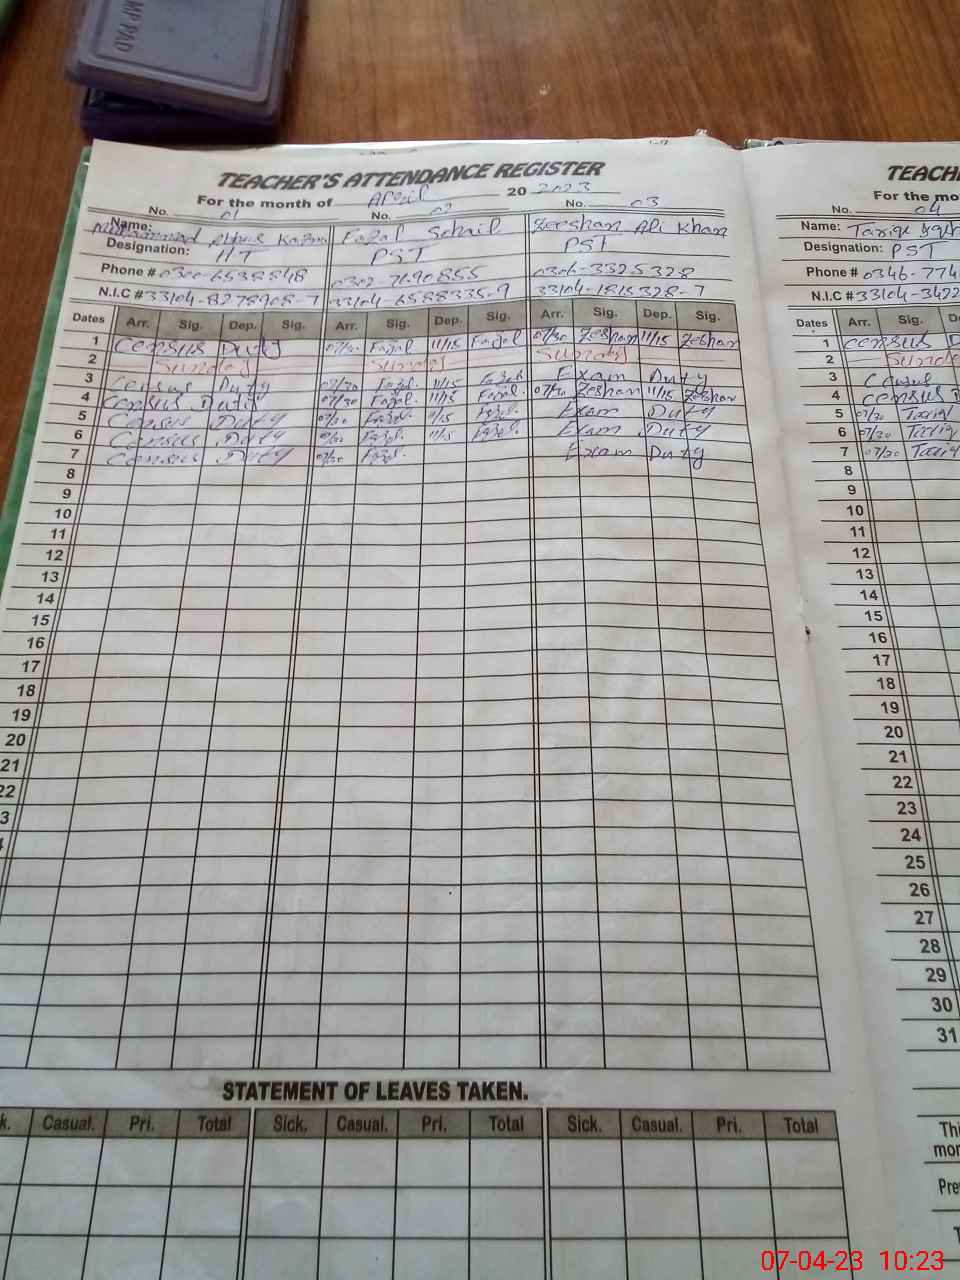 MP PAD
TEACHER'S ATTENDANCE REGISTER
For the month of April 20 2023
No. 01 No. 02 No. 03
Name: Muhammad Abbas Kazmi Fazal Sohail Zeeshan Ali Khan
Designation: HT PST PST
Phone # 0300-6538848 0302-7690855 0306-3325328
N.I.C # 33104-8278908-7 33104-6588335-9 33104-1815328-7
Dates Arr. Sig. Dep. Sig. Arr. Sig. Dep. Sig. Arr. Sig. Dep. Sig.
1 Census Duty 07/30 Fazal 11/15 Fazal 07/30 Zeshan 11/15 Zeshan
2 Sunday Sunday Sunday
3 Census Duty 07/30 Fazal. 11/15 Fazal Exam Duty
4 Census Duty 07/30 Fazal. 11/15 Fazal. 07/30 Zeshan 11/15 Zeshan
5 Census Duty 07/30 Fazal. 11/15 Fazal. Exam Duty
6 Census Duty 07/30 Fazal. 11/15 Fazal. Exam Duty
7 Census Duty 07/30 Fazal. Exam Duty
8
9
10
11
12
13
14
15
16
17
18
19
20
21
22
3
STATEMENT OF LEAVES TAKEN.
k. Casual. Pri. Total Sick. Casual. Pri. Total Sick. Casual. Pri. Total
TEACH
For the mo
No. 04
Name: Tariq
Designation: PST
Phone # 0346-774
N.I.C # 33104-3422
Dates Arr. Sig. De
1 Census D
2 Sunda
3 Census
4 Census
5 07/30 Tariq
6 07/30 Tariq
7 07/30 Tariq
8
9
10
11
12
13
14
15
16
17
18
19
20
21
22
23
24
25
26
27
28
29
30
31
Thi
mor
Pre
T
07-04-23 10:23